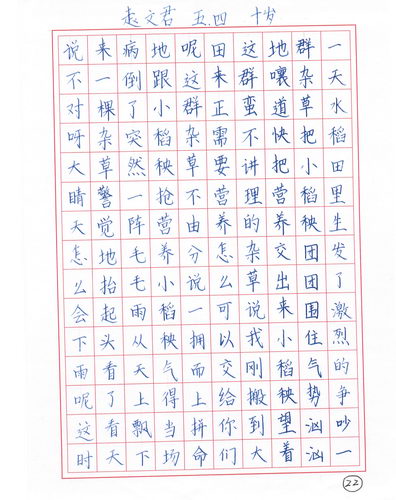 赵文君 五.四 十岁
一天水稻田里生发了激烈的争吵一
群杂草把小稻秧团团围住气势汹汹
地嚷道快把营养交出来小稻秧望着
这群蛮不讲理的杂草说我刚搬到大
田来正需要营养怎么可以交给你们
呢这群杂草不由分说一拥而上拼命
地跟小稻秧抢营养小稻秧气得当场
病倒了突然一阵毛毛雨从天上飘下
来一棵杂草警觉地抬起头看了看天
说不对呀大睛天怎么会下雨呢这时
22